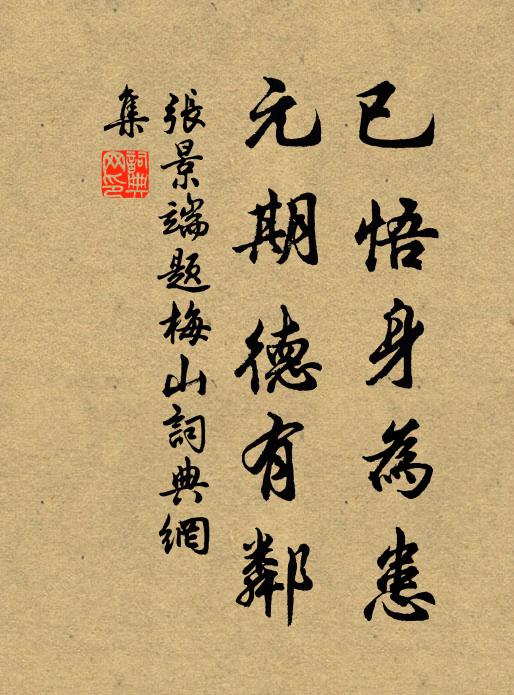 已悟身為患
元期德有鄰
張景端題梅山詞典網
集
詞典
网印